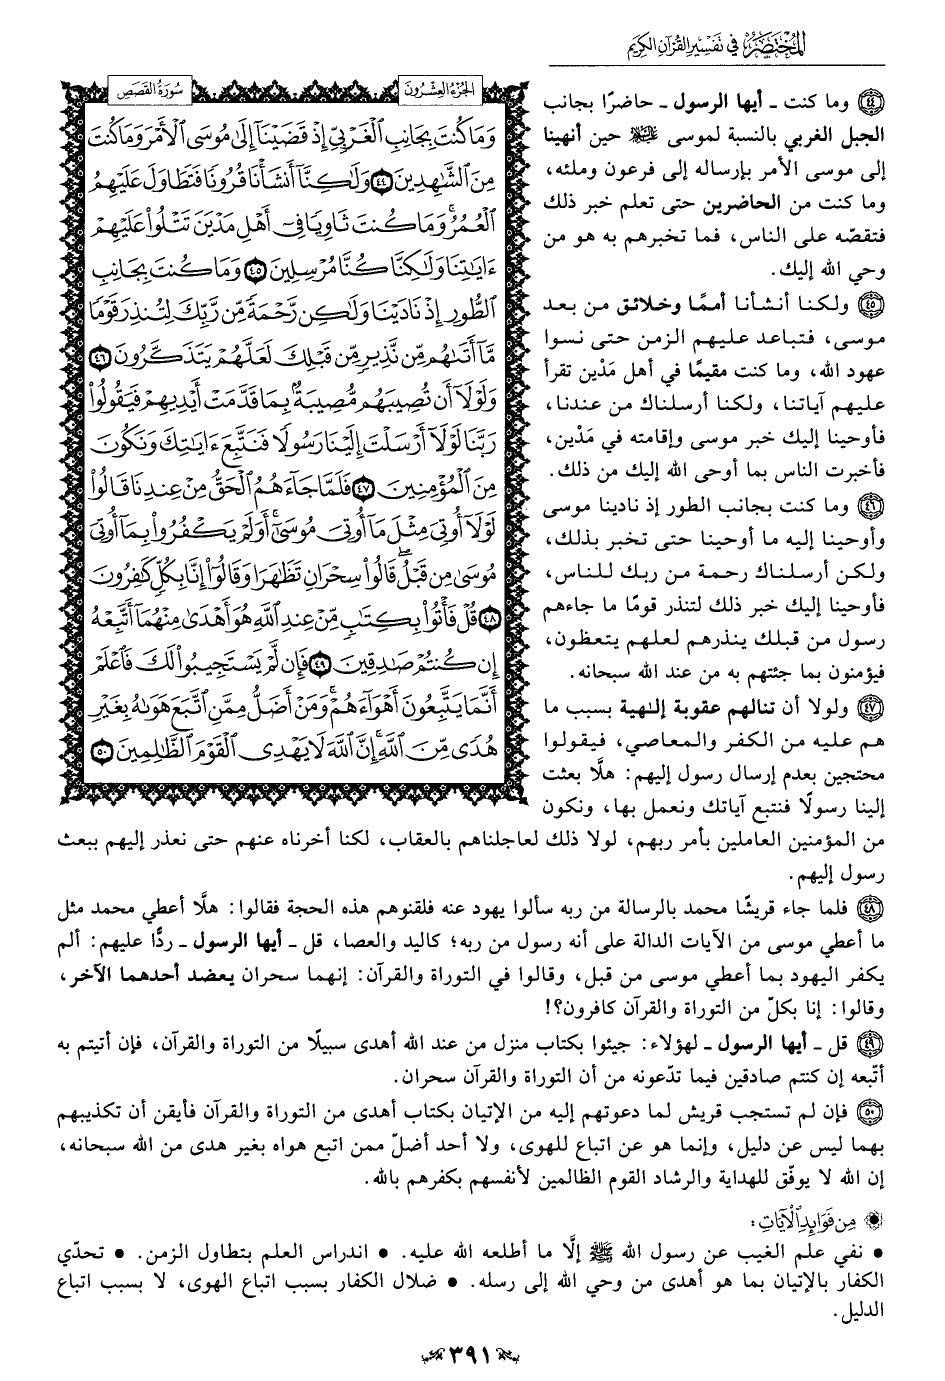 المختصر في تفسير القرآن الكريم
الجزء العشرون
سورة القصص
وَمَا كُنتَ بِجَانِبِ ٱلْغَرْبِيِّ إِذْ قَضَيْنَآ إِلَىٰ مُوسَى ٱلْأَمْرَ وَمَا كُنتَ
مِنَ ٱلشَّٰهِدِينَ ٤٤ وَلَٰكِنَّآ أَنشَأْنَا قُرُونًا فَتَطَاوَلَ عَلَيْهِمُ
ٱلْعُمُرُ ۚ وَمَا كُنتَ ثَاوِيًا فِىٓ أَهْلِ مَدْيَنَ تَتْلُوا۟ عَلَيْهِمْ
ءَايَٰتِنَا وَلَٰكِنَّا كُنَّا مُرْسِلِينَ ٤٥ وَمَا كُنتَ بِجَانِبِ
ٱلطُّورِ إِذْ نَادَيْنَا وَلَٰكِن رَّحْمَةً مِّن رَّبِّكَ لِتُنذِرَ قَوْمًا
مَّآ أَتَىٰهُم مِّن نَّذِيرٍ مِّن قَبْلِكَ لَعَلَّهُمْ يَتَذَكَّرُونَ ٤٦
وَلَوْلَآ أَن تُصِيبَهُم مُّصِيبَةٌۢ بِمَا قَدَّمَتْ أَيْدِيهِمْ فَيَقُولُوا۟
رَبَّنَا لَوْلَآ أَرْسَلْتَ إِلَيْنَا رَسُولًا فَنَتَّبِعَ ءَايَٰتِكَ وَنَكُونَ
مِنَ ٱلْمُؤْمِنِينَ ٤٧ فَلَمَّا جَآءَهُمُ ٱلْحَقُّ مِنْ عِندِنَا قَالُوا۟
لَوْلَآ أُوتِىَ مِثْلَ مَآ أُوتِىَ مُوسَىٰٓ ۚ أَوَلَمْ يَكْفُرُوا۟ بِمَآ أُوتِىَ
مُوسَىٰ مِن قَبْلُ ۖ قَالُوا۟ سِحْرَانِ تَظَٰهَرَا وَقَالُوٓا۟ إِنَّا بِكُلٍّ كَٰفِرُونَ
٤٨ قُلْ فَأْتُوا۟ بِكِتَٰبٍ مِّنْ عِندِ ٱللَّهِ هُوَ أَهْدَىٰ مِنْهُمَآ أَتَّبِعْهُ
إِن كُنتُمْ صَٰدِقِينَ ٤٩ فَإِن لَّمْ يَسْتَجِيبُوا۟ لَكَ فَٱعْلَمْ
أَنَّمَا يَتَّبِعُونَ أَهْوَآءَهُمْ ۚ وَمَنْ أَضَلُّ مِمَّنِ ٱتَّبَعَ هَوَىٰهُ بِغَيْرِ
هُدًى مِّنَ ٱللَّهِ ۚ إِنَّ ٱللَّهَ لَا يَهْدِى ٱلْقَوْمَ ٱلظَّٰلِمِينَ ٥٠
٤٤ وما كنت ـ أيها الرسول ـ حاضرًا بجانب
الجبل الغربي بالنسبة لموسى ﵇ حين أنهينا
إلى موسى الأمر بإرساله إلى فرعون وملئه،
وما كنت من الحاضرين حتى تعلم خبر ذلك
فتقصّه على الناس، فما تخبرهم به هو من
وحي الله إليك.
٤٥ ولكنا أنشأنا أممًا وخلائق من بعد
موسى، فتباعد عليهم الزمن حتى نسوا
عهود الله، وما كنت مقيمًا في أهل مَدْين تقرأ
عليهم آياتنا، ولكنا أرسلناك من عندنا،
فأوحينا إليك خبر موسى وإقامته في مَدْين،
فأخبرت الناس بما أوحى الله إليك من ذلك.
٤٦ وما كنت بجانب الطور إذ نادينا موسى
وأوحينا إليه ما أوحينا حتى تخبر بذلك،
ولكن أرسلناك رحمة من ربك للناس،
فأوحينا إليك خبر ذلك لتنذر قومًا ما جاءهم
رسول من قبلك ينذرهم لعلهم يتعظون،
فيؤمنون بما جئتهم به من عند الله سبحانه.
٤٧ ولولا أن تنالهم عقوبة إلٰهية بسبب ما
هم عليه من الكفر والمعاصي، فيقولوا
محتجين بعدم إرسال رسول إليهم: هلَّا بعثت
إلينا رسولًا فنتبع آياتك ونعمل بها، ونكون
من المؤمنين العاملين بأمر ربهم، لولا ذلك لعاجلناهم بالعقاب، لكنا أخرناه عنهم حتى نعذر إليهم ببعث
رسول إليهم.
٤٨ فلما جاء قريشًا محمد بالرسالة من ربه سألوا يهود عنه فلقنوهم هذه الحجة فقالوا: هلَّا أعطي محمد مثل
ما أعطي موسى من الآيات الدالة على أنه رسول من ربه؛ كاليد والعصا، قل ـ أيها الرسول ـ ردًّا عليهم: ألم
يكفر اليهود بما أعطي موسى من قبل، وقالوا في التوراة والقرآن: إنهما سحران يعضد أحدهما الآخر،
وقالوا: إنا بكلّ من التوراة والقرآن كافرون؟!
٤٩ قل ـ أيها الرسول ـ لهؤلاء: جيئوا بكتاب منزل من عند الله أهدى سبيلًا من التوراة والقرآن، فإن أتيتم به
أتّبعه إن كنتم صادقين فيما تدّعونه من أن التوراة والقرآن سحران.
٥٠ فإن لم تستجب قريش لما دعوتهم إليه من الإتيان بكتاب أهدى من التوراة والقرآن فأيقن أن تكذيبهم
بهما ليس عن دليل، وإنما هو عن اتباع للهوى، ولا أحد أضلّ ممن اتبع هواه بغير هدى من الله سبحانه،
إن الله لا يوفّق للهداية والرشاد القوم الظالمين لأنفسهم بكفرهم بالله.
من فوائد الآيات:
• نفي علم الغيب عن رسول الله ﷺ إلَّا ما أطلعه الله عليه. • اندراس العلم بتطاول الزمن. • تحدّي
الكفار بالإتيان بما هو أهدى من وحي الله إلى رسله. • ضلال الكفار بسبب اتباع الهوى، لا بسبب اتباع
الدليل.
٣٩١